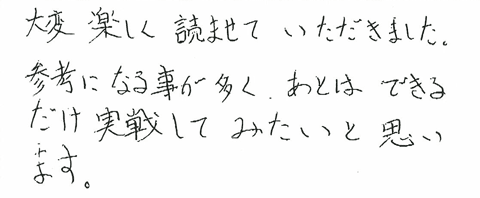 大変楽しく読ませていただきました。
参考になる事が多く、あとはできる
だけ実戦してみたいと思い
ます。